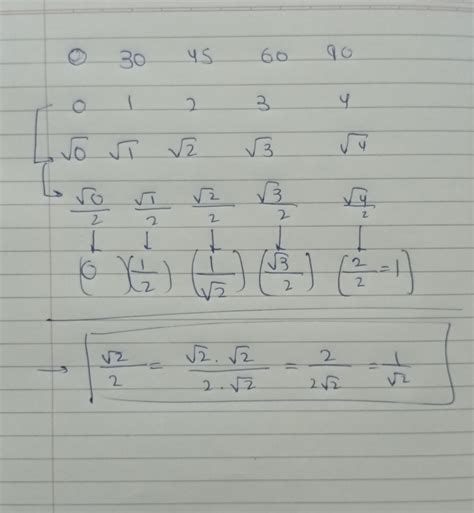 0 30 45 60 90
0 1 2 3 4
√0 √1 √2 √3 √4
√0/2 √1/2 √2/2 √3/2 √4/2
↓ ↓ ↓ ↓ ↓
(0) (1/2) (1/√2) (√3/2) (2/2 = 1)
→ √2/2 = √2 . √2 / 2 . √2 = 2/2√2 = 1/√2